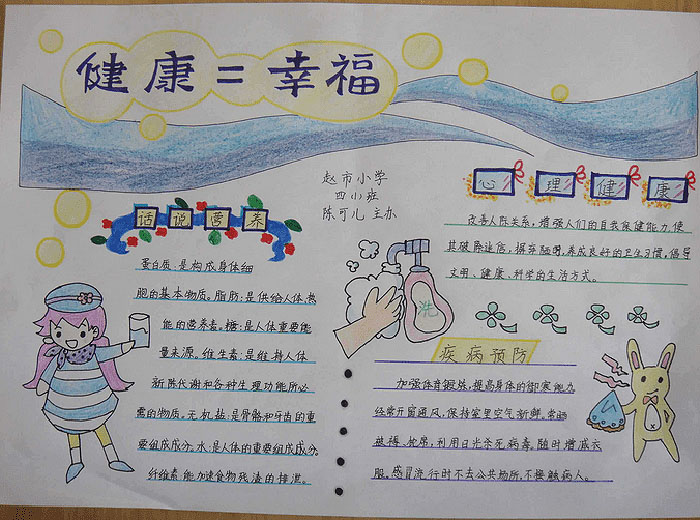 健康=幸福
赵市小学
四小班
陈可儿 主办
话说营养
蛋白质:是构成身体细
胞的基本物质。脂肪:是供给人体热
能的营养素。糖:是人体重要能
量来源。维生素:是维持人体
新陈代谢和各种生理功能所必
需的物质。无机盐:是骨骼和牙齿的重
要组成成分。水:是人体的重要组成成分。
纤维素能加速食物残渣的排泄。
心理健康
改善人际关系,增强人们的自我保健能力,使
其破除迷信,摒弃陋习,养成良好的卫生习惯,倡导
文明、健康、科学的生活方式。
洗
疾病预防
加强体育锻炼,提高身体的御寒能力。
经常开窗通风,保持室里空气新鲜,常晒
被褥、枕席,利用日光杀死病毒。随时增减衣
服。感冒流行时不去公共场所,不接触病人。